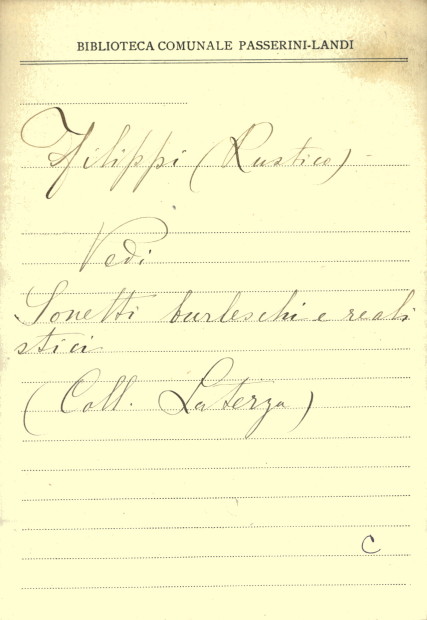 BIBLIOTECA COMUNALE PASSERINI-LANDI
Filippi (Rustico) -
Vedi
Sonetti burleschi e reali
stici
(Coll. Laterza)
C